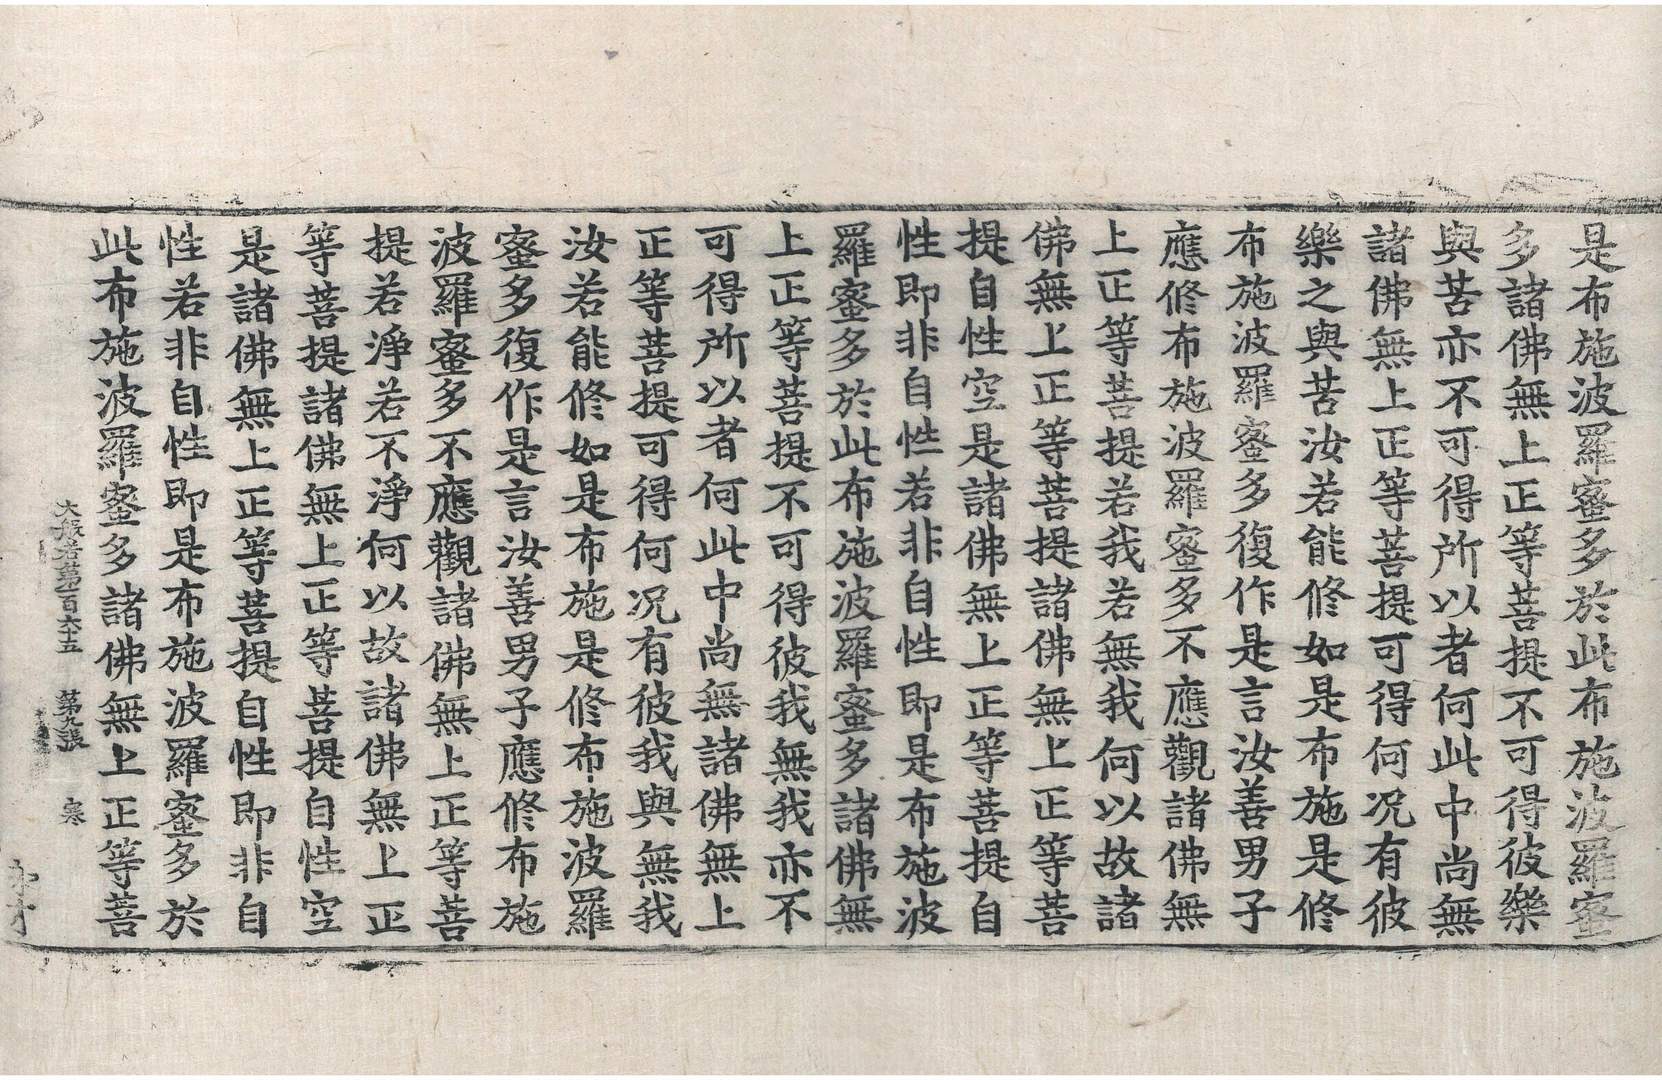 是布施波羅蜜多於此布施波羅蜜
多諸佛無上正等菩提不可得彼樂
與苦亦不可得所以者何此中尚無
諸佛無上正等菩提可得何況有彼
樂之與苦汝若能修如是布施是修
布施波羅蜜多復作是言汝善男子
應修布施波羅蜜多不應觀諸佛無
上正等菩提若我若無我何以故諸
佛無上正等菩提諸佛無上正等菩
提自性空是諸佛無上正等菩提自
性即非自性若非自性即是布施波
羅蜜多於此布施波羅蜜多諸佛無
上正等菩提不可得彼我無我亦不
可得所以者何此中尚無諸佛無上
正等菩提可得何況有彼我與無我
汝若能修如是布施是修布施波羅
蜜多復作是言汝善男子應修布施
波羅蜜多不應觀諸佛無上正等菩
提若淨若不淨何以故諸佛無上正
等菩提諸佛無上正等菩提自性空
是諸佛無上正等菩提自性即非自
性若非自性即是布施波羅蜜多於
此布施波羅蜜多諸佛無上正等菩
大般若第一百六十五 第九張 寒